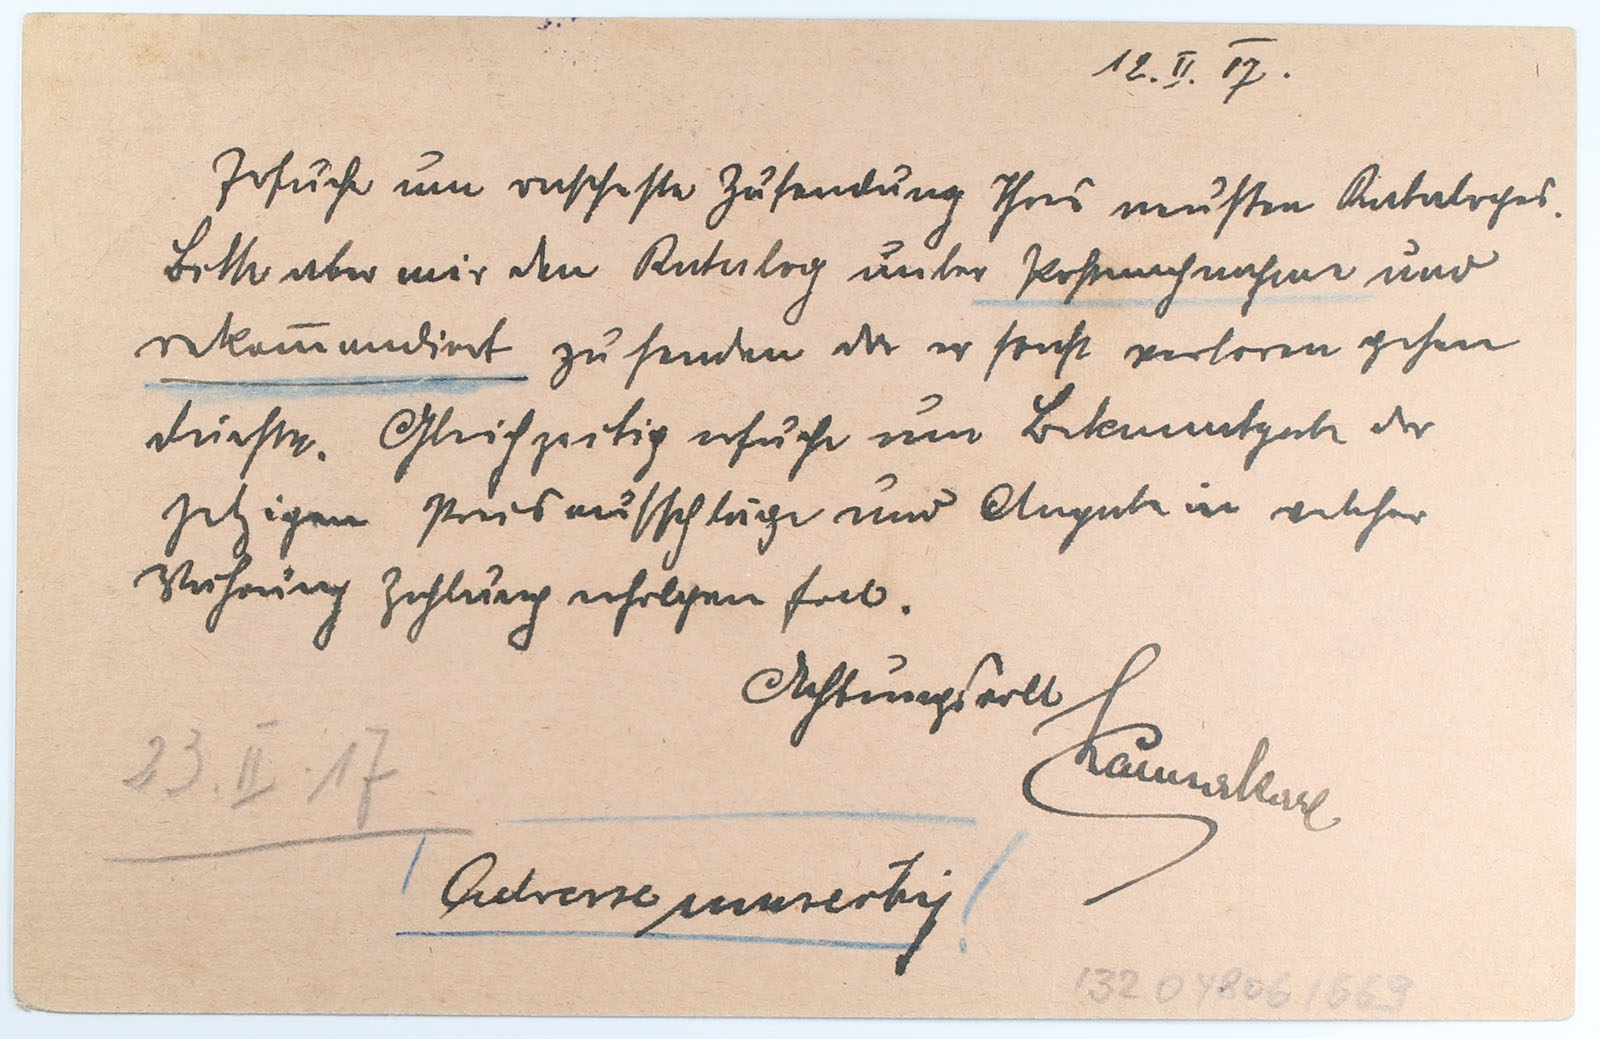 12. II. 17.
Ersuche um rascheste Zusendung Ihres neusten Kataloges.
Bitte aber mir den Katalog unter Postnachnahme und
rekommandirt zu senden da er sonst verloren gehen
dürfte. Gleichzeitig ersuche um Bekanntgabe der
jetzigen Preisaufschläge und Angabe in welcher
Währung Zahlung erfolgen soll.
Achtungsvoll
23. II. 17.
Adresse umseitig!
132 048061669